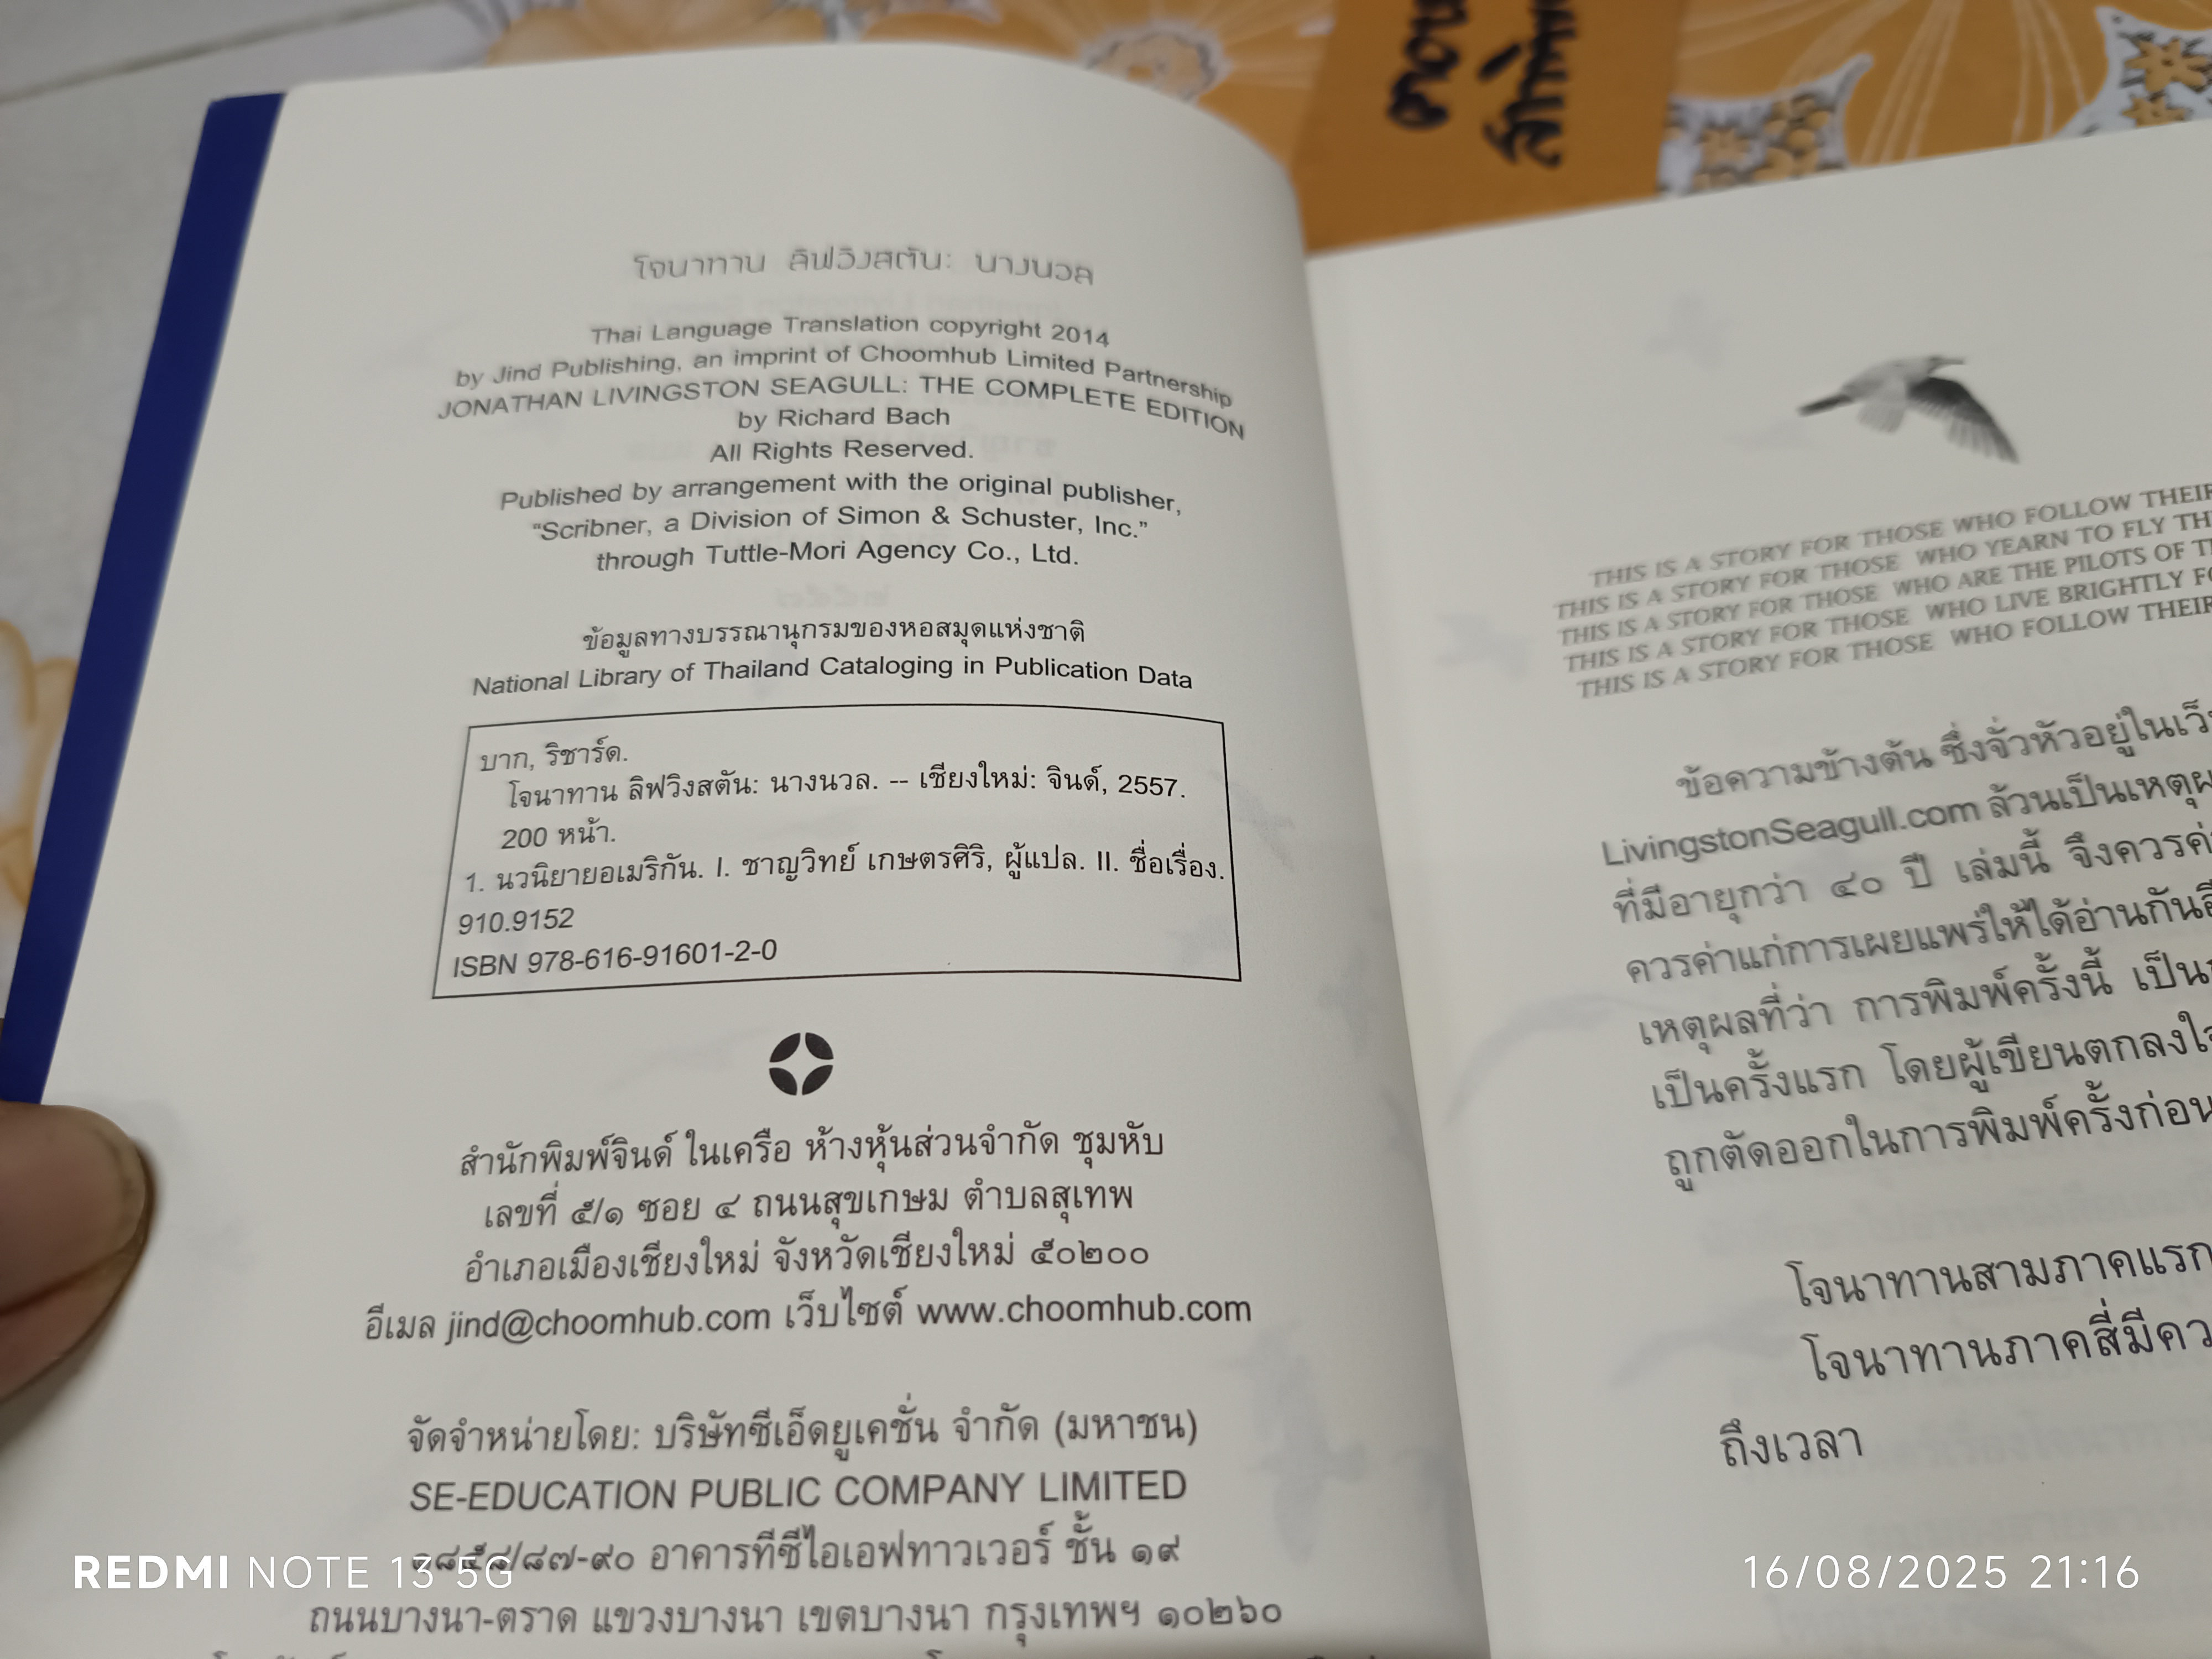 โจนาทาน ลิฟวิงสตัน: นางนวล
Thai Language Translation copyright 2014
by Jind Publishing, an imprint of Choomhub Limited Partnership
JONATHAN LIVINGSTON SEAGULL: THE COMPLETE EDITION
by Richard Bach
All Rights Reserved.
Published by arrangement with the original publisher,
“Scribner, a Division of Simon & Schuster, Inc.”
through Tuttle-Mori Agency Co., Ltd.
ข้อมูลทางบรรณานุกรมของหอสมุดแห่งชาติ
National Library of Thailand Cataloging in Publication Data
บาก, ริชาร์ด.
โจนาทาน ลิฟวิงสตัน: นางนวล. -- เชียงใหม่: จินด์, 2557.
200 หน้า.
1. นวนิยายอเมริกัน. I. ชาญวิทย์ เกษตรศิริ, ผู้แปล. II. ชื่อเรื่อง.
910.9152
ISBN 978-616-91601-2-0
สำนักพิมพ์จินด์ ในเครือ ห้างหุ้นส่วนจำกัด ชุมหับ
เลขที่ ๕/๑ ซอย ๔ ถนนสุขเกษม ตำบลสุเทพ
อำเภอเมืองเชียงใหม่ จังหวัดเชียงใหม่ ๕๐๒๐๐
อีเมล jind@choomhub.com เว็บไซต์ www.choomhub.com
จัดจำหน่ายโดย: บริษัทซีเอ็ดยูเคชั่น จำกัด (มหาชน)
SE-EDUCATION PUBLIC COMPANY LIMITED
๑๘๕๘/๘๗-๙๐ อาคารทีซีไอเอฟทาวเวอร์ ชั้น ๑๙
ถนนบางนา-ตราด แขวงบางนา เขตบางนา กรุงเทพฯ ๑๐๒๖๐
THIS IS A STORY FOR THOSE WHO FOLLOW THEIR
THIS IS A STORY FOR THOSE WHO YEARN TO FLY
THIS IS A STORY FOR THOSE WHO ARE THE PILOTS OF
THIS IS A STORY FOR THOSE WHO LIVE BRIGHTLY
THIS IS A STORY FOR THOSE WHO FOLLOW THEIR
ข้อความข้างต้น ซึ่งจั่วหัวอยู่ในเว็
LivingstonSeagull.com ล้วนเป็นเหตุผ
ที่มีอายุกว่า ๔๐ ปี เล่มนี้ จึงควรค่
ควรค่าแก่การเผยแพร่ให้ได้อ่านกัน
เหตุผลที่ว่า การพิมพ์ครั้งนี้ เป็น
เป็นครั้งแรก โดยผู้เขียนตกลงใ
ถูกตัดออกในการพิมพ์ครั้งก่อน
โจนาทานสามภาคแรก
โจนาทานภาคสี่มีคว
ถึงเวลา
REDMI NOTE 13 5G
16/08/2025 21:16